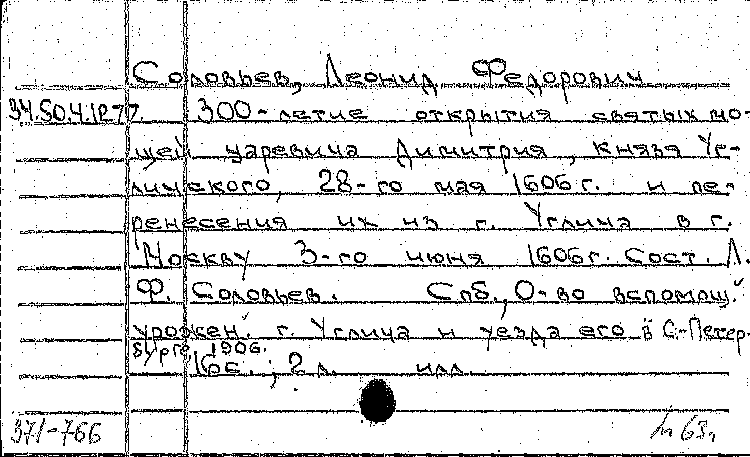 Соловьев, Леонид Федорович
34.50.4.1277. 300-летие открытия святых мо-
щей царевича Димитрия, князя Уг-
личского, 28-го мая 1606 г. и пе-
ренесения их из г. Углича в г.
Москву 3-го июня 1606 г. Сост. Л.
Ф. Соловьев. Спб., О-во вспомощ.
урожен. г. Углича и уезда его в С.-Петер-
бурге, 1906.
16 с.; 2 л. илл.
371-766 63,